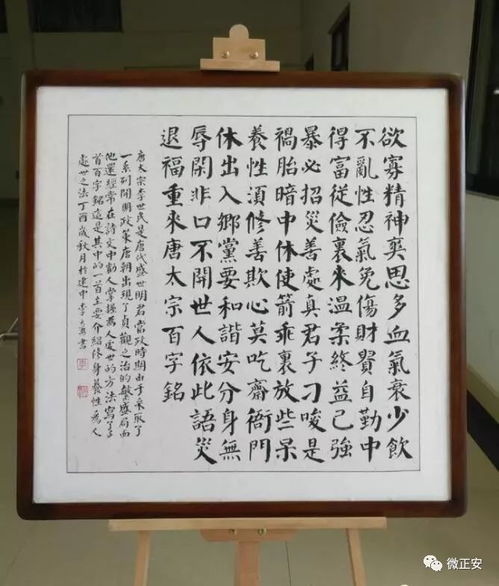 欲寡精神爽思多血氣衰少飲
不亂性忍氣免傷財貴自勤中
得富從儉裏來温柔終益己強
暴必招災善處真君子刁唆是
禍胎暗中休使箭乖裏放些呆
養性須修善欺心莫吃齋衙門
休出入鄉黨要和諧安分身無
辱閑非口不開世人依此語災
退福重來唐太宗百字銘
唐太宗李世民是唐代盛世明君當政時期由于采取了
一系列開明政策唐朝出現了貞觀之治的繁盛局面
他還經常在詩文中勸人掌握爲人處世的方法寫了
首百字銘這是其中的一首主要介紹修身養性爲人
處世之法丁酉歲秋月於建中李書
微正安